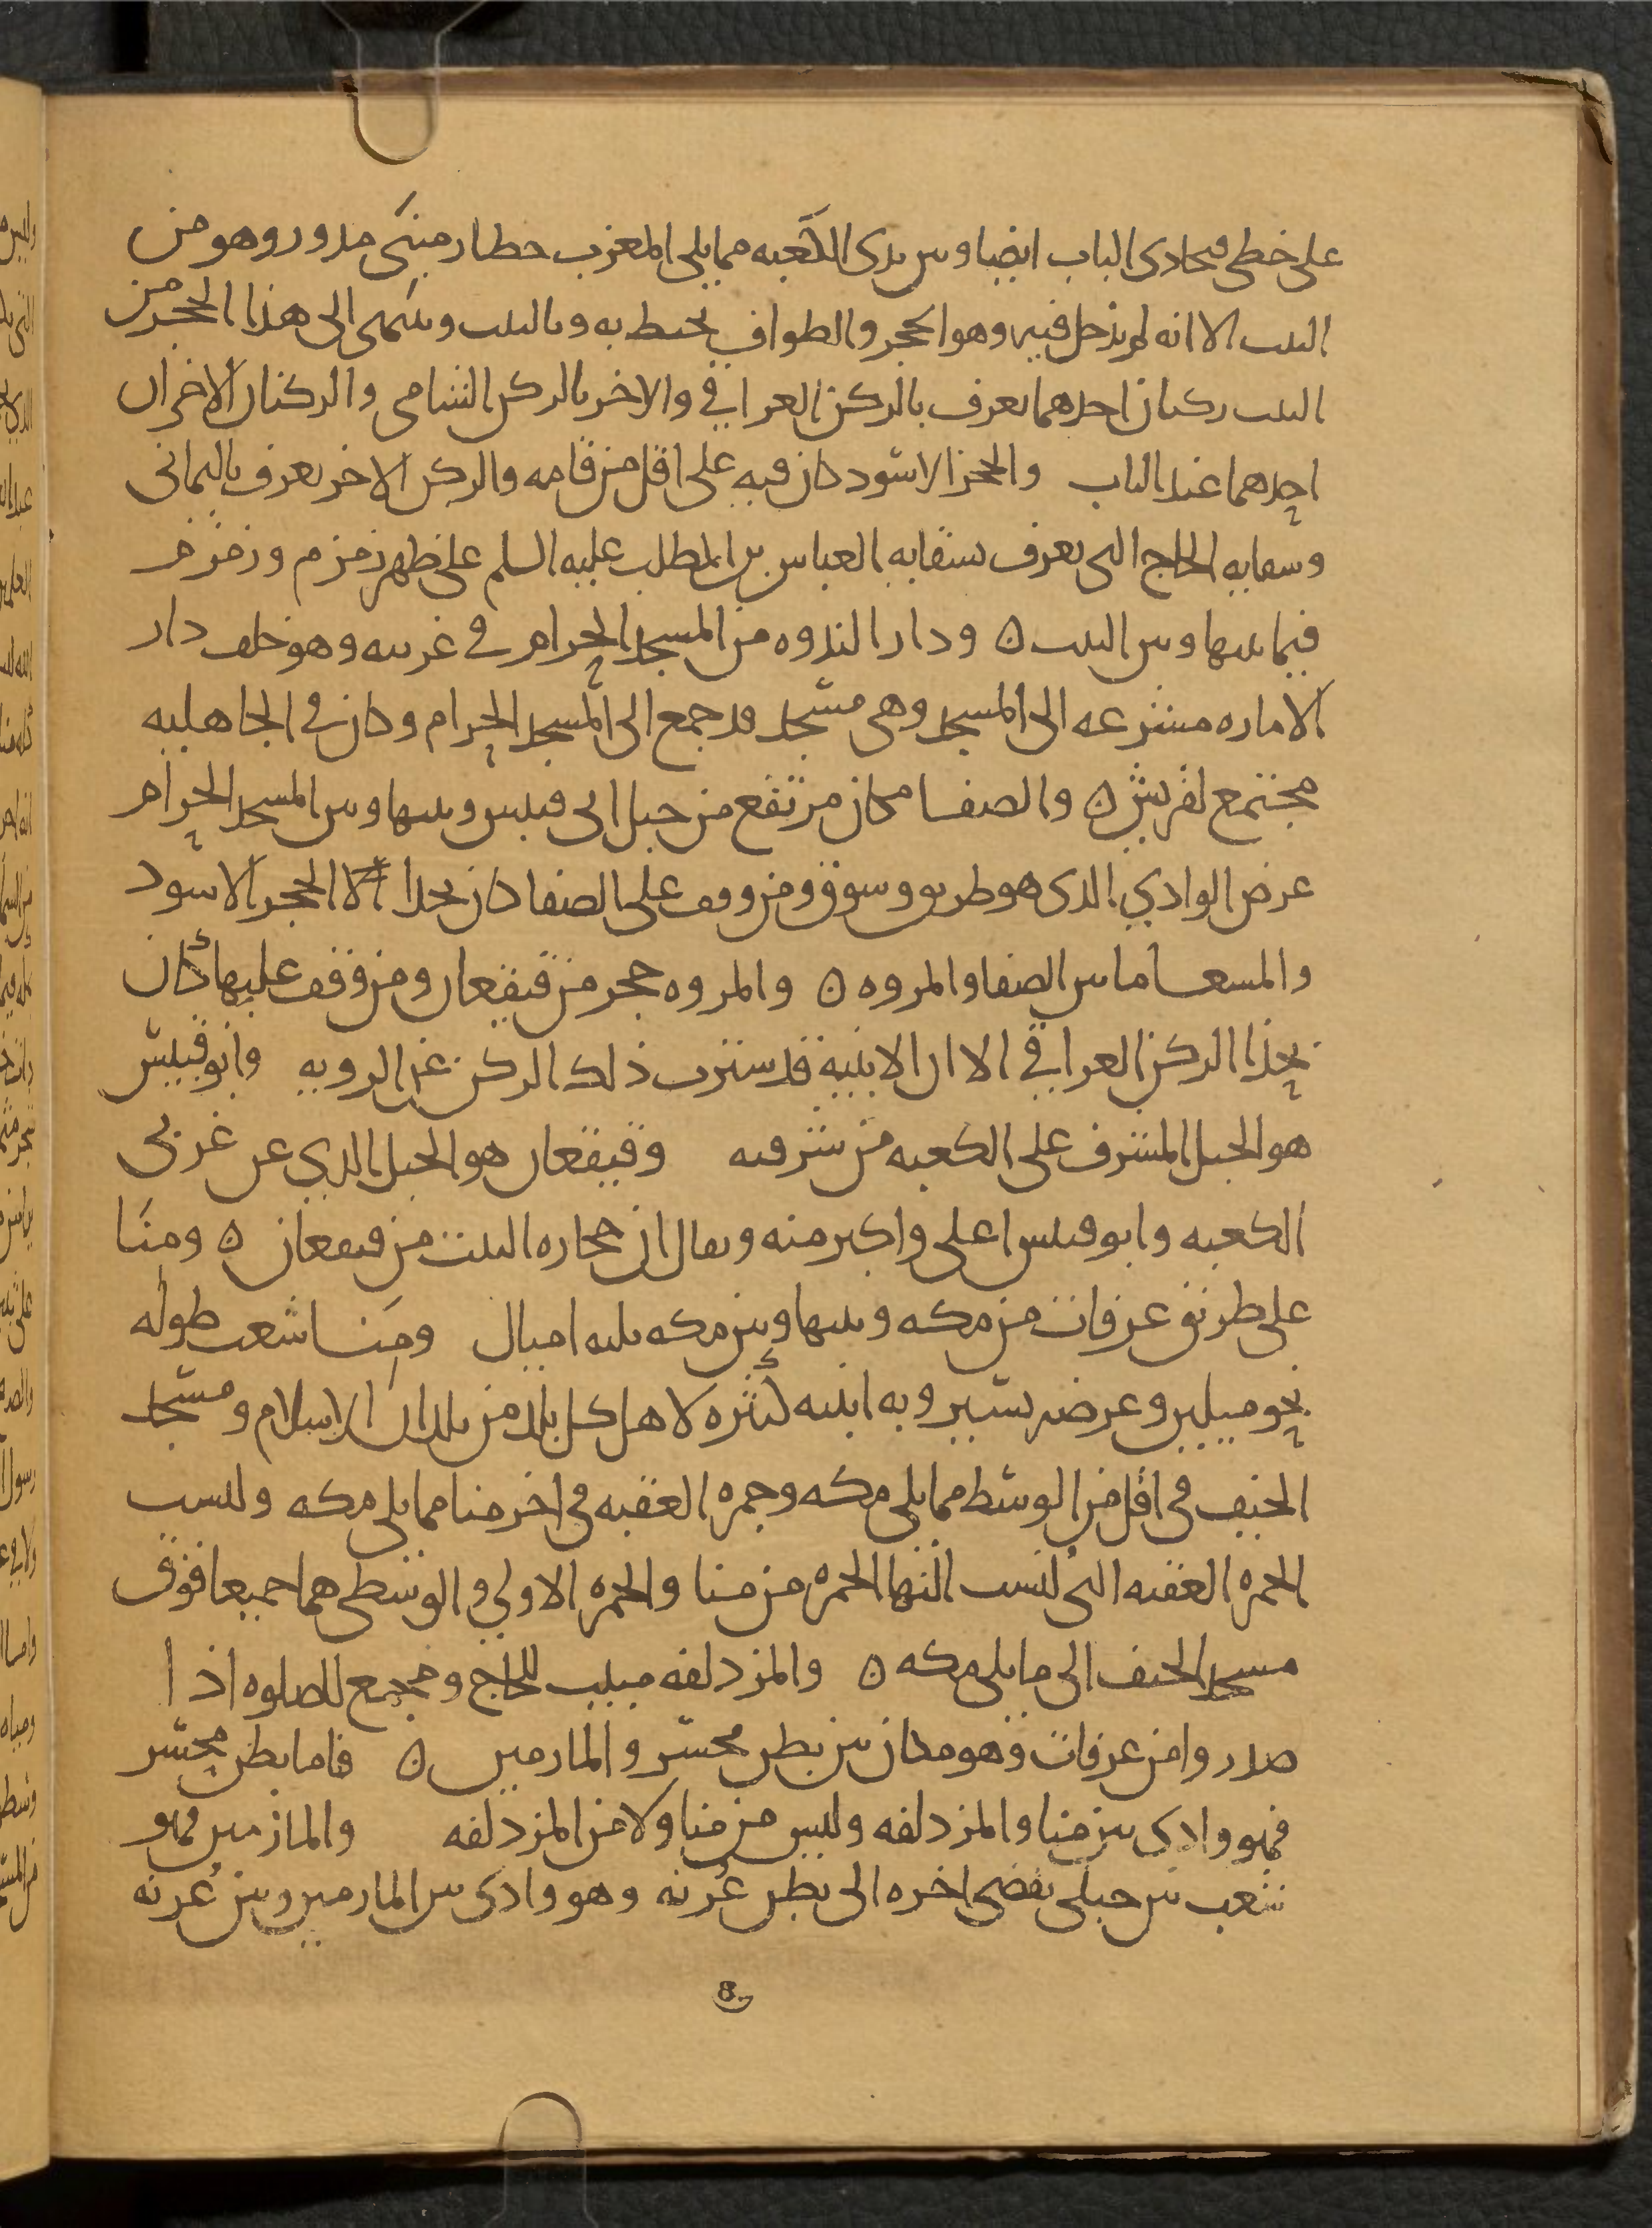 على خطى محادى الباب ايضا وبىں يدى الكعبه مما يلى المغرب حطار مبنى مدور وهو من
البىت الا انه لم يدخل فيه وهو الحجر والطواف يحيط به وبالبيت وينتهى الى هذا الحجر من
البيت ركنان احدهما يعرف بالركن العراقي والاخر بالركن الشامي والركنان الاخران
احدهما عند الباب والحجر الاسود كان فيه على اقل من قامه والركن الاخر يعرف باليماني
وسقايه الحاج التى تعرف بسقايه العباس بن المطلب عليه السلم على ظهر زمزم وزمزم
فيما بينها وبين البيت ه ودار الندوه من المسجد الحرام في غربيه وهو خلف دار
الاماره مشرعه الى المسجد وهى مسجد قد جمع الى المسجد الحرام وكان في الجاهليه
مجتمع لقريش ه والصفا مكان مرتفع من جبل ابى قبيس وبينها وبين المسجد الحرام
عرض الوادي الذى هو طريق وسوق ومن وقف على الصفا كان بحدا الحجر الاسود
والمسعا ما بين الصفا والمروه ه والمروه حجر من قيقعان ومن وقف عليها كان
بحذا الركن العراقي الا ان الابنية قد سترت ذلك الركن عن الرويه وابو قبيس
هو الجبل المشرف على الكعبه من شرقيه وقيقعان هو الجبل الذي عن غربى
الكعبه وابو قبيس اعلى واكبر منه ويقال ان حجاره البيت من قيقعان ه ومنا
على طريق عرفات من مكه وبينها وبين مكه ثلثه اميال ومنا شعب طوله
نحو ميلين وعرضه يسير وبه ابنيه كثيره لاهل كل بلد من بلدان الاسلام ومسجد
الخيف في اقل من الوسط مما يلى مكه وجمره العقبه في اخر منا مما يلى مكه وليست
الجمره العقبه التى تنسب اليها الجمره من منا والجمره الاولي والوسطى هما جميعا فوق
مسجد الخيف الى ما يلى مكه ه والمزدلفه مبيت للحاج ومجمع للصلوه اذا
صدروا من عرفات وهو مكان بين بطن محسر والمازمين ه فاما بطن محسر
فهو وادى بين منا والمزدلفه وليس من منا ولا من المزدلفه والمازمين فهو
شعب بين جبلى يفضى اخره الى بطن عُرنه وهو وادى بين المازمين وبين عُرنه
8